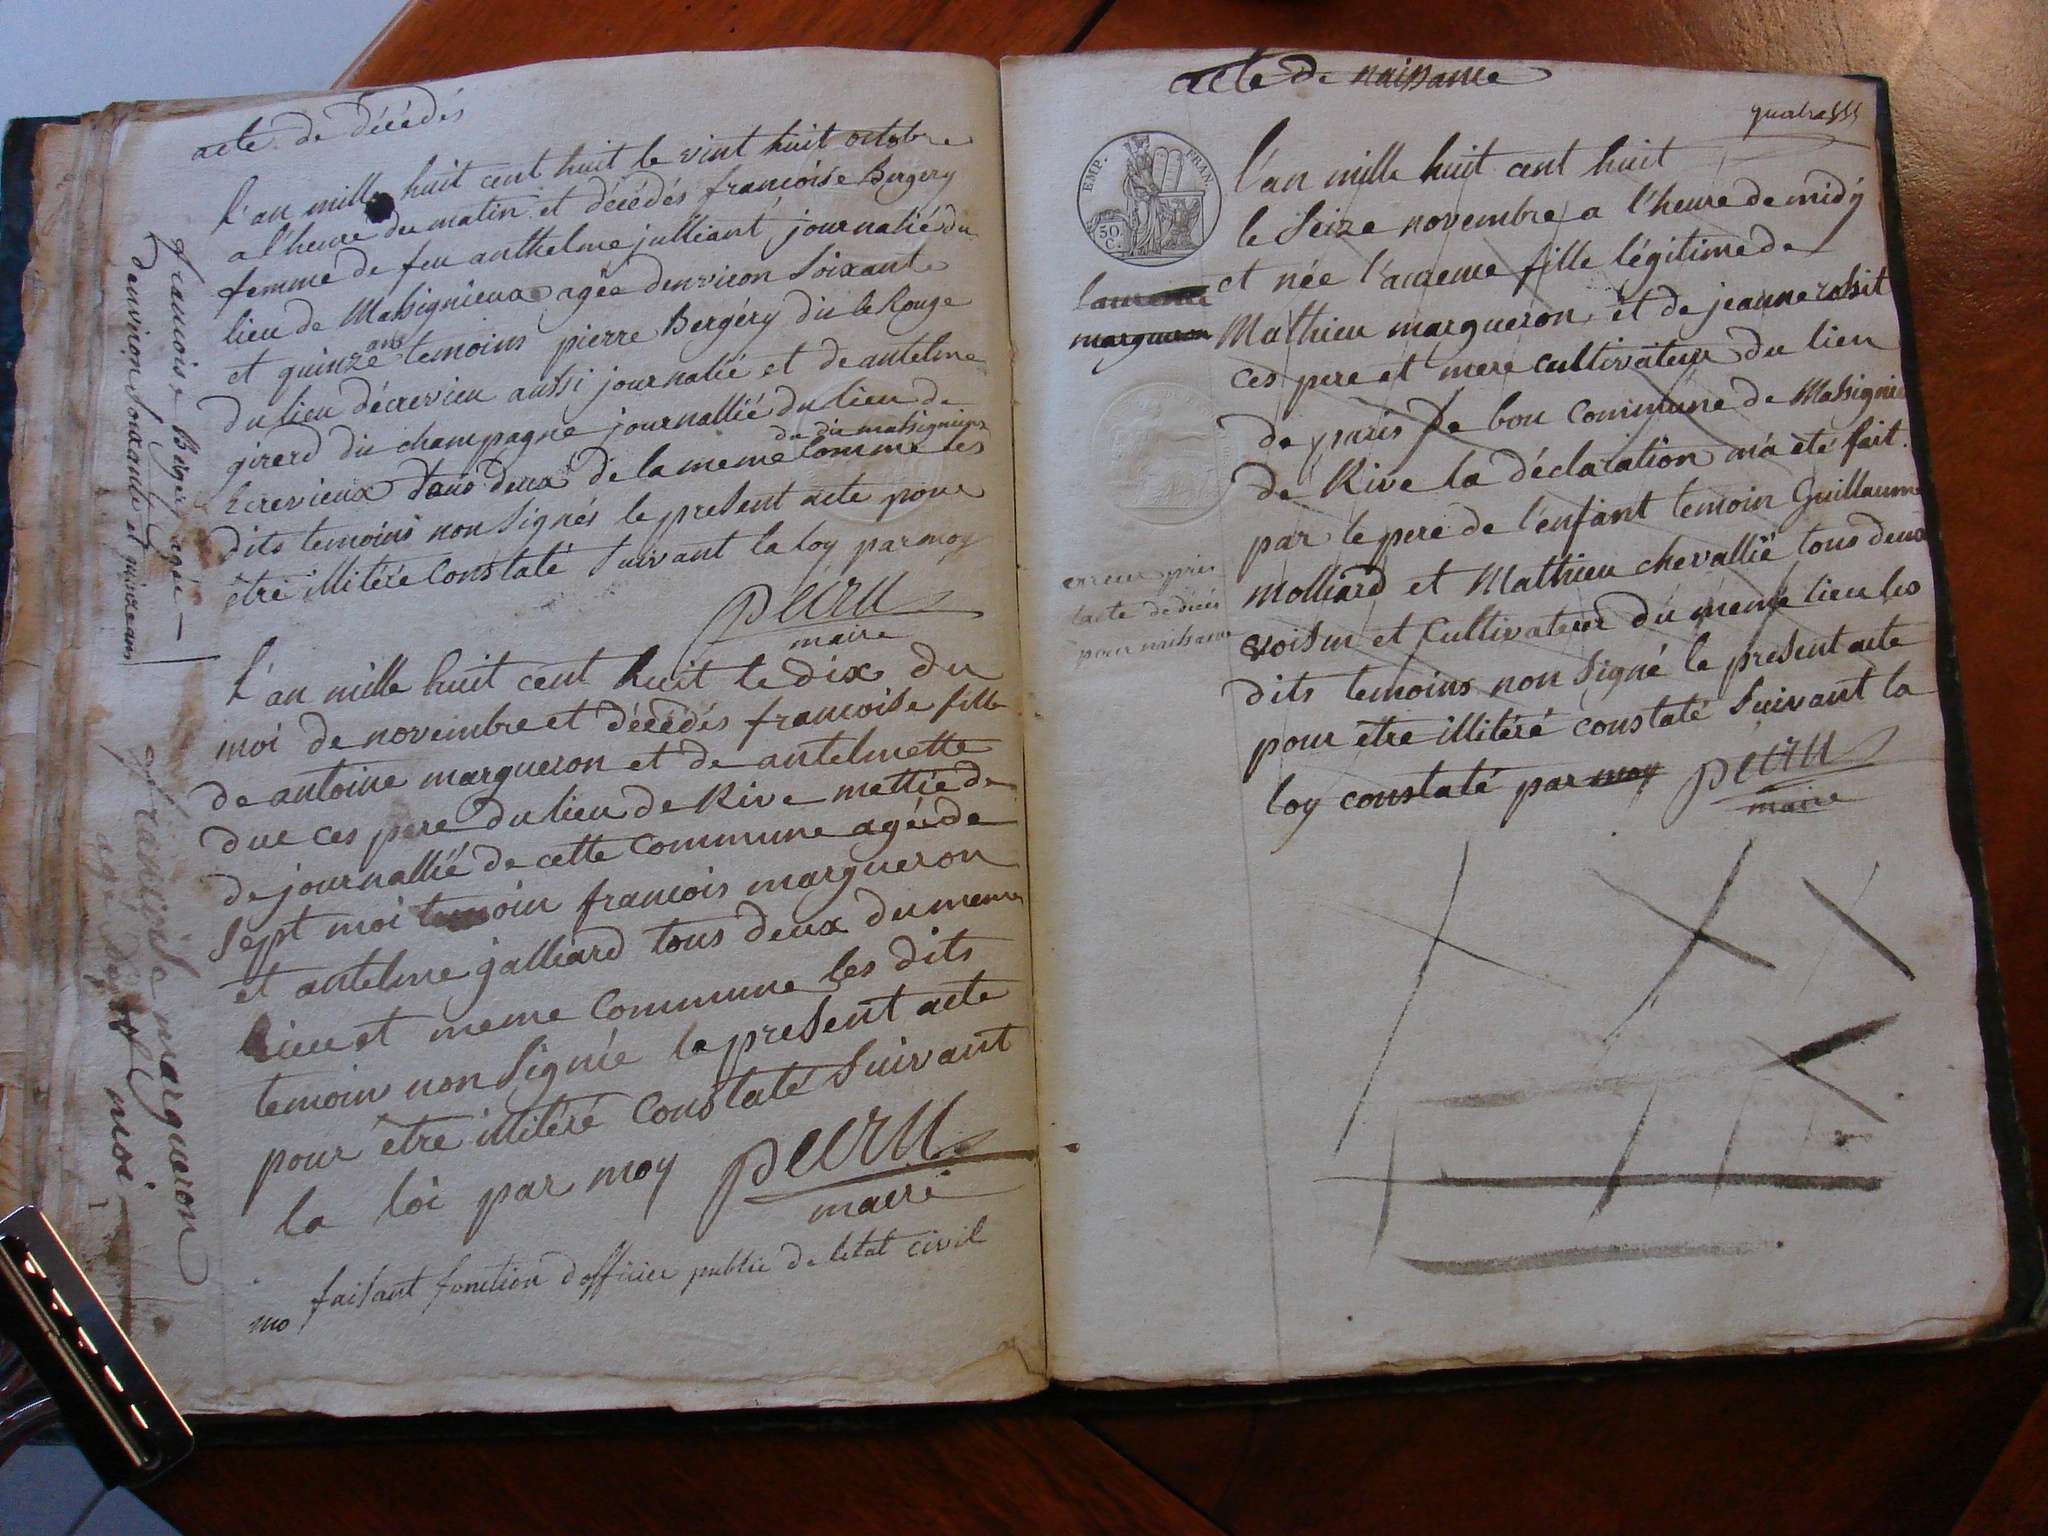 acte de décédés
L'an mille huit cent huit le vint huit octobre
a l'heure du matin et décédés francoise Bergery
femme de feu anthelme julliant journalié du
lieu de Massignieux agée denviron soixante
et quinze ans temoins pierre Bergéry dit le Rouge
du lieu décrevieu aussi journalié et de antelme
girerd dit champagne journallié du lieu de
du dit massignieux
Ecrevieux tous deux de la meme Comme les
dits temoins non signés le present acte pour
être illitéré Constaté suivant la loy par moy
Pécru
maire
francoise Bergery agée
denviron soixante et quinze ans
L'an mille huit cent huit le dix du
moi de novembre et décédés francoise fille
de antoine margueron et de antelmette
due ces pere du lieu de Rive mettié de
de journallié de cette Commune agée de
sept moi temoin francois margueron
et antelme galliard tous deux du meme
Lieu et meme Commune les dits
temoin non signée le present acte
pour être illitéré Constaté suivant
la loi par moy Pécru
maire
francoise margueron
agé de sept moi
faisant fonction dofficier public de letat civil
mo
acte de naissance
EMP. FRAN.
50 C.
L'an mille huit cent huit
le seize novembre a l'heure de midÿ
et née l'aurence fille légitime de
Mathieu margueron et de jeanne
ces pere et mere cultivateur du lieu
de bon Commune de Massignieu
de Rive la déclaration m'a eté fait
par le pere de l'enfant temoin Guillaume
molliard et Mathieu chevallié tous deux
voisin et Cultivateur du meme lieu les
dits temoins non signé le present acte
pour etre illitéré constaté suivant la
loy constaté par moy Pécru
maire
laurence
margueron
erreur pris
lacte de décés
pour naissance